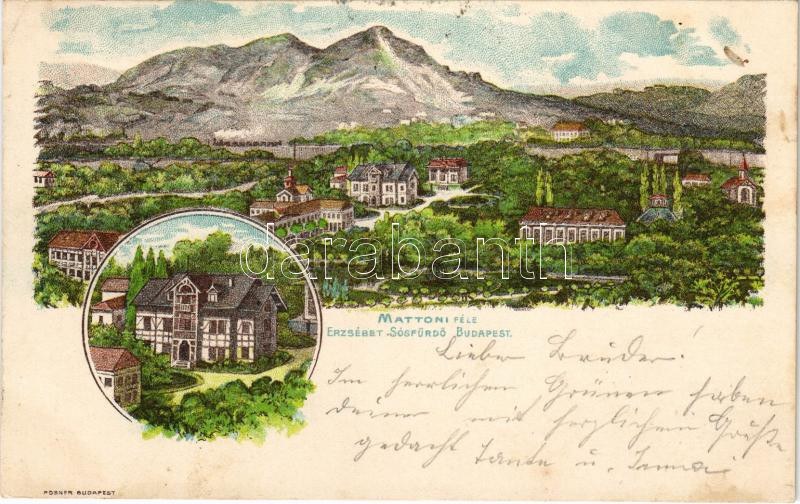 darabanth
MATTONI FÉLE
ERZSÉBET-SÓSFÜRDŐ BUDAPEST.
Lieber Bruder!
Im herrlichen Grünen haben
deiner mit herzlichem Grüße
gedacht Tante u.
POSNER BUDAPEST